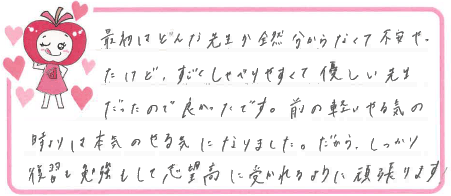 最初はどんな先生か全然分からなくて不安や、
たけど、すごくしゃべりやすくて優しい先生
だったので良かったです。前の軽いやる気の
時よりは本気のやる気になりました。だから、しっかり
復習も勉強もして志望高に受かれるように頑張ります!